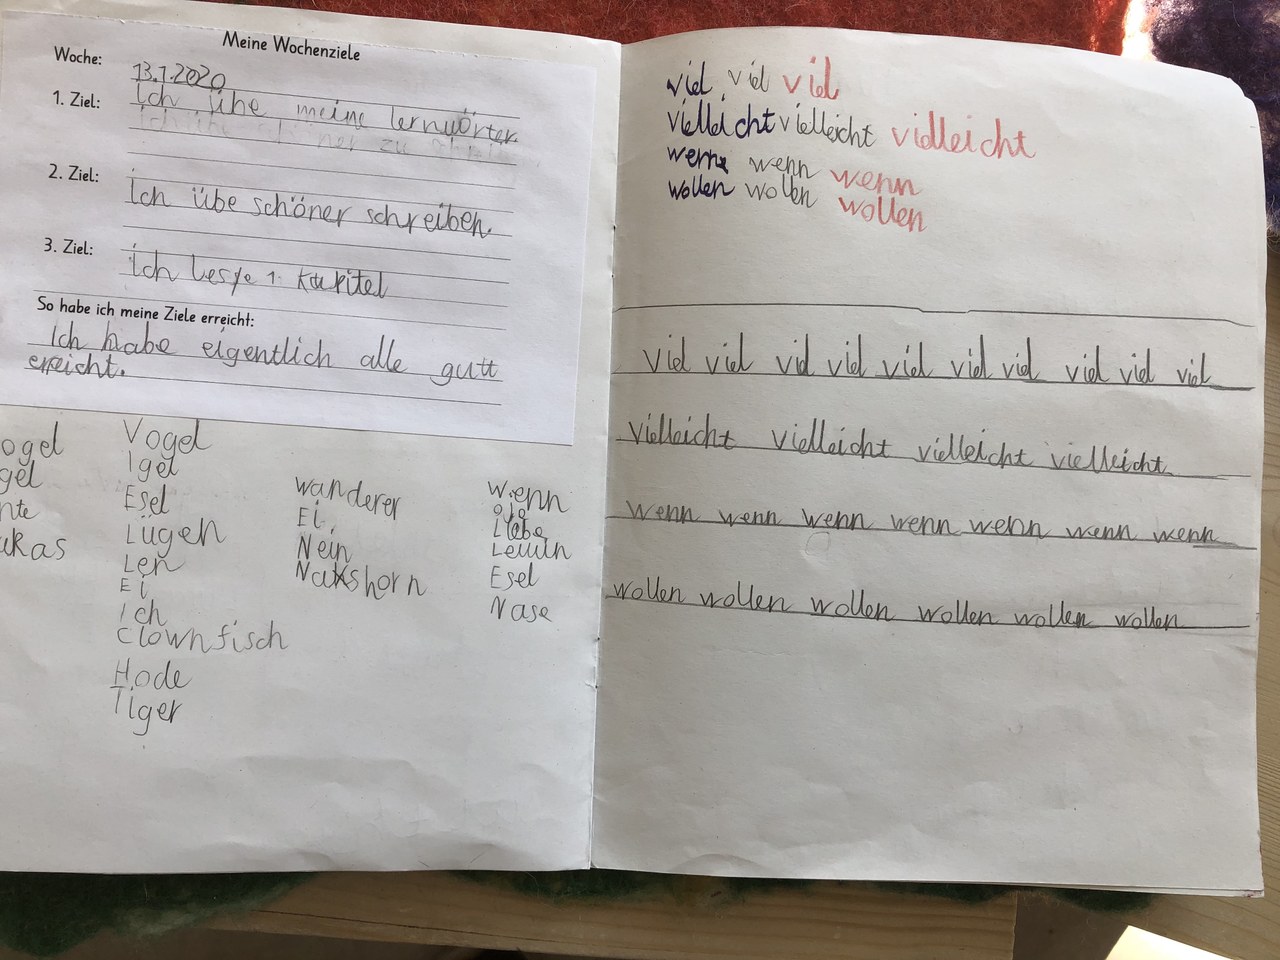 Meine Wochenziele
Woche: 13.1.2020
1. Ziel: Ich übe meine lernwörter
2. Ziel: Ich übe schöner schreiben.
3. Ziel: Ich lese 1. Kapitel
So habe ich meine Ziele erreicht:
Ich habe eigentlich alle gutt
erreicht.
ogel
gel
nte
ukas
Vogel
Igel
Esel
Lügen
Len
Ei
Ich
Clownfisch
Hode
Tiger
wanderer
Ei
Nein
Nakshorn
wienn
oje
Liebe
Esel
Nase
viel viel viel
vielleicht vielleicht vielleicht
wenn wenn wenn
wollen wollen wollen
viel viel viel viel viel viel viel viel viel viel
vielleicht vielleicht vielleicht vielleicht
wenn wenn wenn wenn wenn wenn wenn
wollen wollen wollen wollen wollen wollen